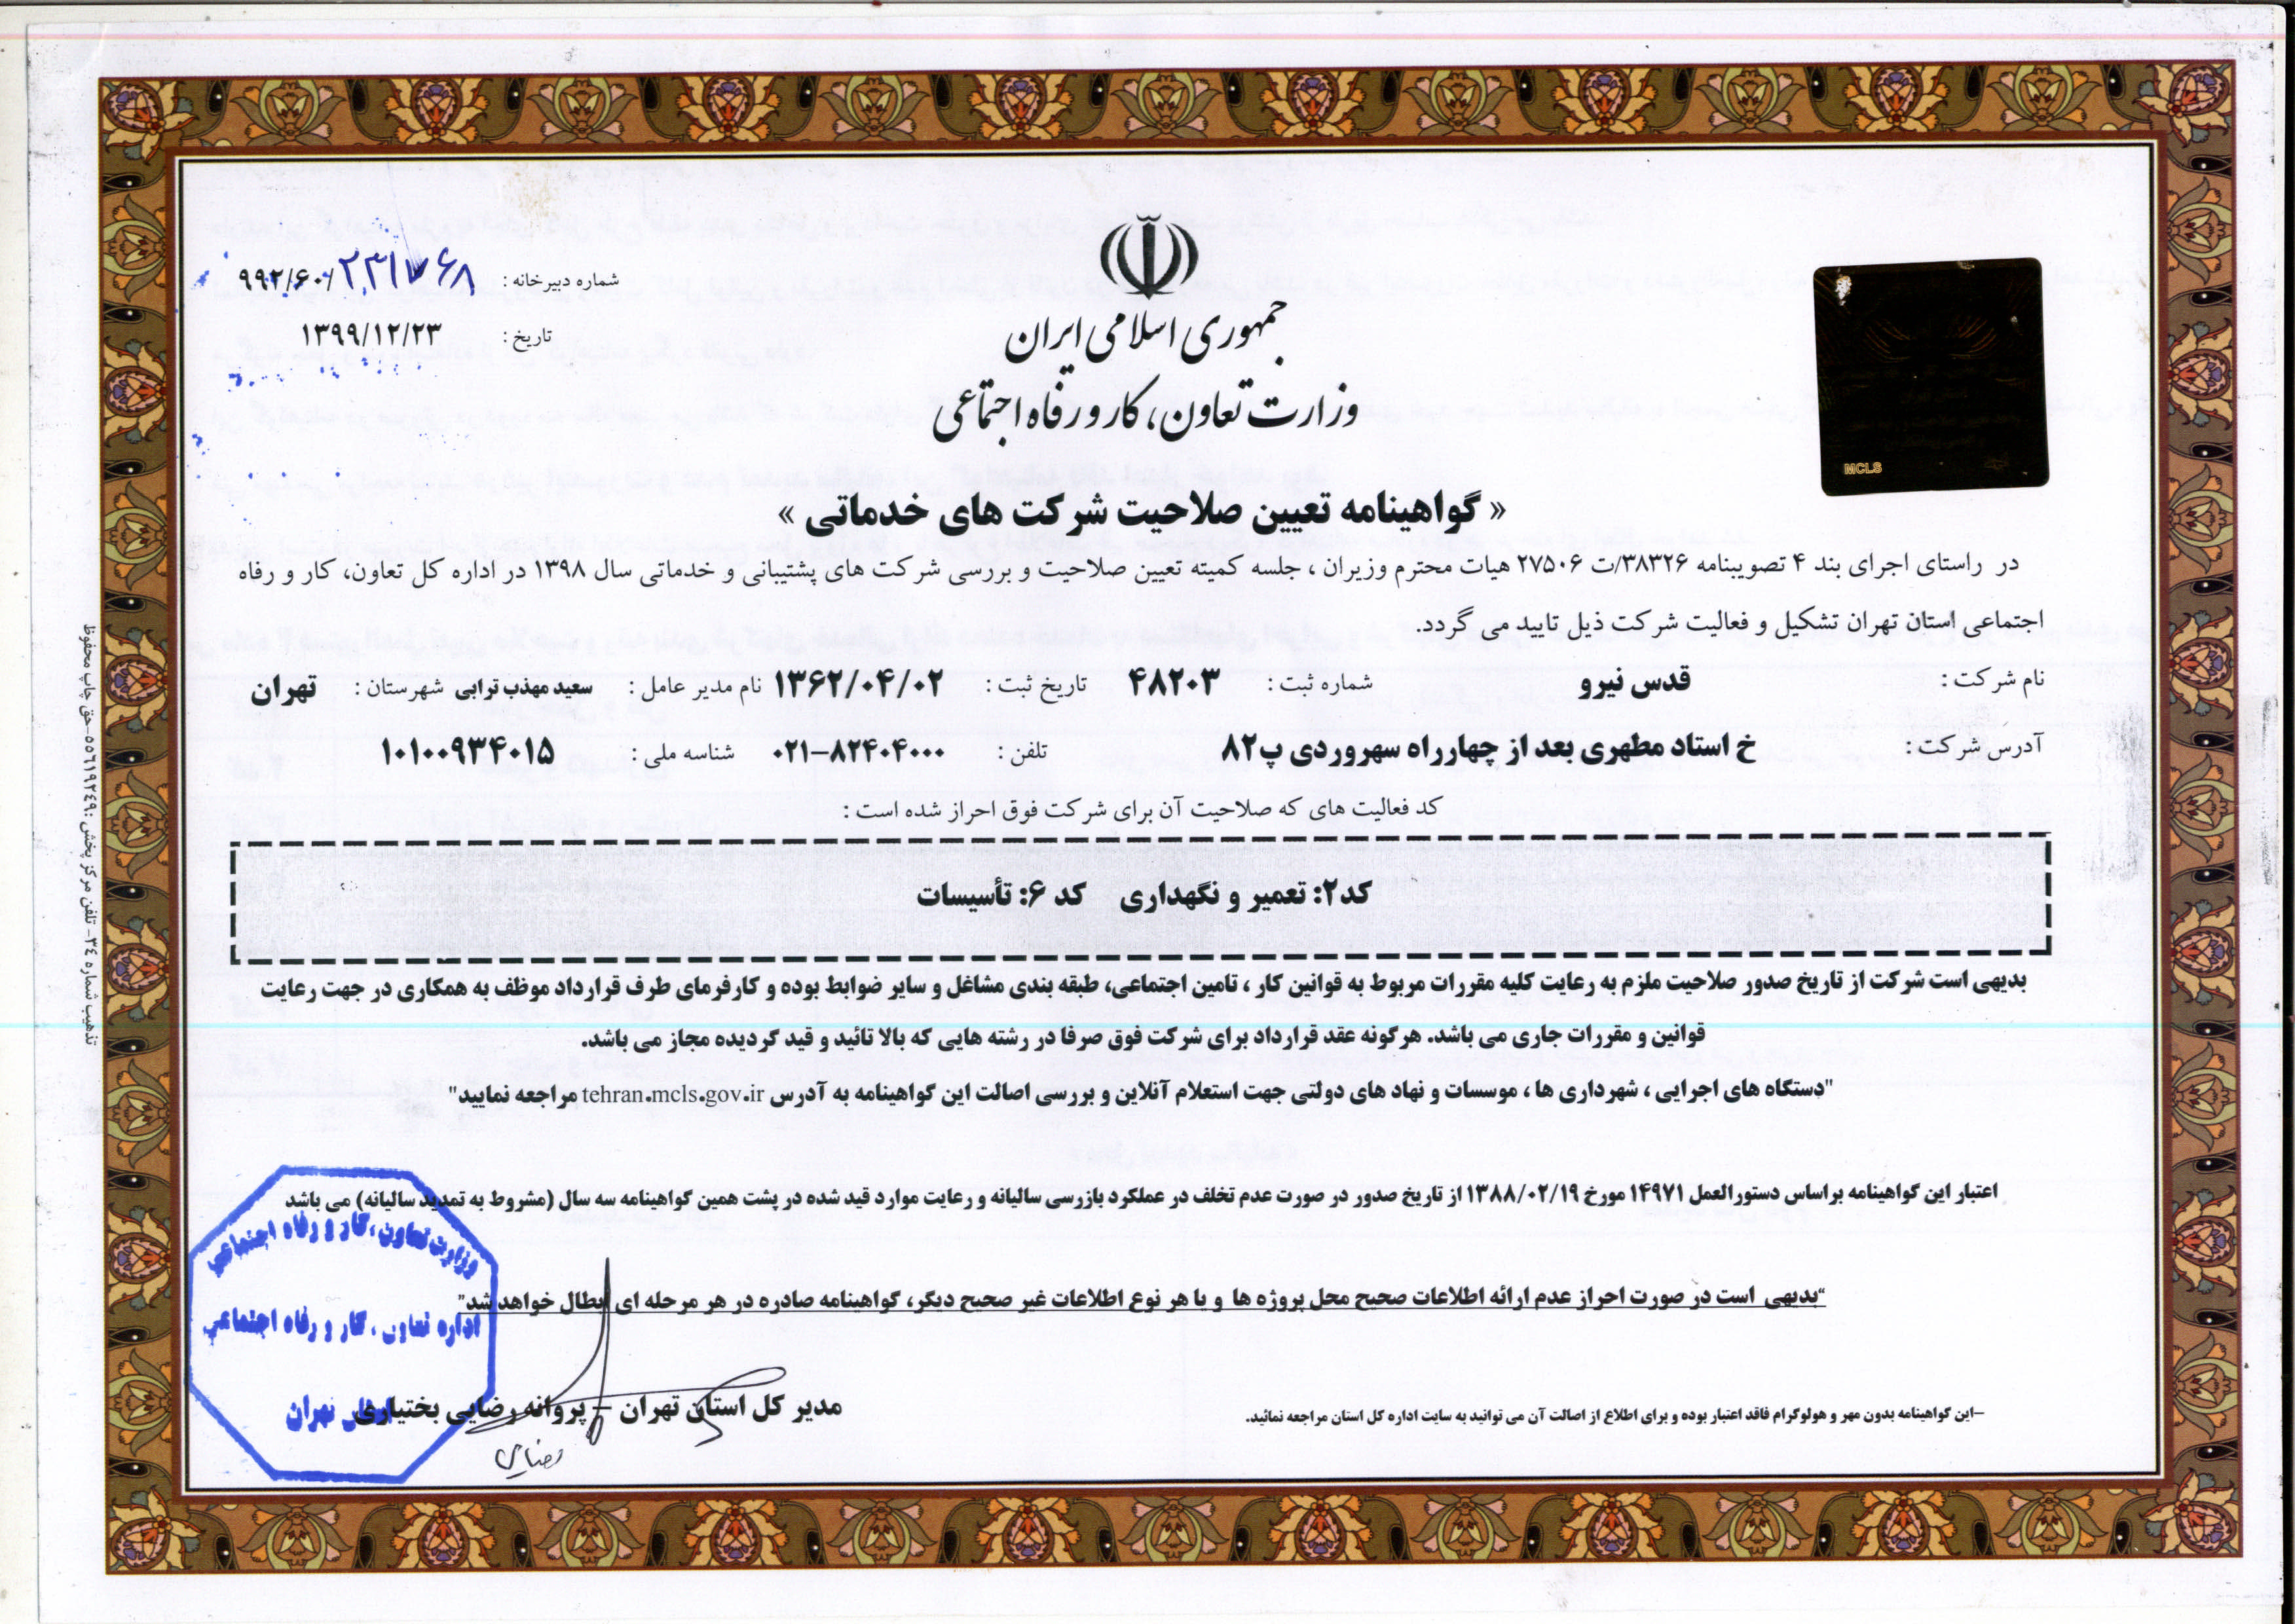 شماره دبیرخانه : ۹۹۲/۶۰/۲۳۱۷۶۸
تاریخ : ۱۳۹۹/۱۲/۲۳
جمهوری اسلامی ایران
وزارت تعاون، کار و رفاه اجتماعی
MCLS
« گواهینامه تعیین صلاحیت شرکت های خدماتی »
در راستای اجرای بند ۴ تصویبنامه ۳۸۳۲۶/ت ۲۷۵۰۶ هیات محترم وزیران ، جلسه کمیته تعیین صلاحیت و بررسی شرکت های پشتیبانی و خدماتی سال ۱۳۹۸ در اداره کل تعاون، کار و رفاه
اجتماعی استان تهران تشکیل و فعالیت شرکت ذیل تایید می گردد.
نام شرکت : قدس نیرو شماره ثبت : ۴۸۲۰۳ تاریخ ثبت : ۱۳۶۲/۰۴/۰۲ نام مدیر عامل : سعید مهذب ترابی شهرستان : تهران
آدرس شرکت : خ استاد مطهری بعد از چهارراه سهروردی پ۸۲ تلفن : ۰۲۱-۸۲۴۰۴۰۰۰ شناسه ملی : ۱۰۱۰۰۹۳۴۰۱۵
کد فعالیت های که صلاحیت آن برای شرکت فوق احراز شده است :
کد۲: تعمیر و نگهداری کد ۶: تأسیسات
بدیهی است شرکت از تاریخ صدور صلاحیت ملزم به رعایت کلیه مقررات مربوط به قوانین کار ، تامین اجتماعی، طبقه بندی مشاغل و سایر ضوابط بوده و کارفرمای طرف قرارداد موظف به همکاری در جهت رعایت
قوانین و مقررات جاری می باشد. هرگونه عقد قرارداد برای شرکت فوق صرفا در رشته هایی که بالا تائید و قید گردیده مجاز می باشد.
"دستگاه های اجرایی ، شهرداری ها ، موسسات و نهاد های دولتی جهت استعلام آنلاین و بررسی اصالت این گواهینامه به آدرس tehran.mcls.gov.ir مراجعه نمایید"
اعتبار این گواهینامه براساس دستورالعمل ۱۴۹۷۱ مورخ ۱۳۸۸/۰۲/۱۹ از تاریخ صدور در صورت عدم تخلف در عملکرد بازرسی سالیانه و رعایت موارد قید شده در پشت همین گواهینامه سه سال (مشروط به تمدید سالیانه) می باشد
"بدیهی است در صورت احراز عدم ارائه اطلاعات صحیح محل پروژه ها و یا هر نوع اطلاعات غیر صحیح دیگر، گواهینامه صادره در هر مرحله ای ابطال خواهد شد"
مدیر کل استان تهران – پروانه رضایی بختیاری
رضایی
وزارت تعاون، کار و رفاه اجتماعی
اداره تعاون، کار و رفاه اجتماعی
استان تهران
-این گواهینامه بدون مهر و هولوگرام فاقد اعتبار بوده و برای اطلاع از اصالت آن می توانید به سایت اداره کل استان مراجعه نمائید.
تذهیب شماره ٣٤- تلفن مرکز پخش :٥٥٦١٩٢٤٩-حق چاپ محفوظ